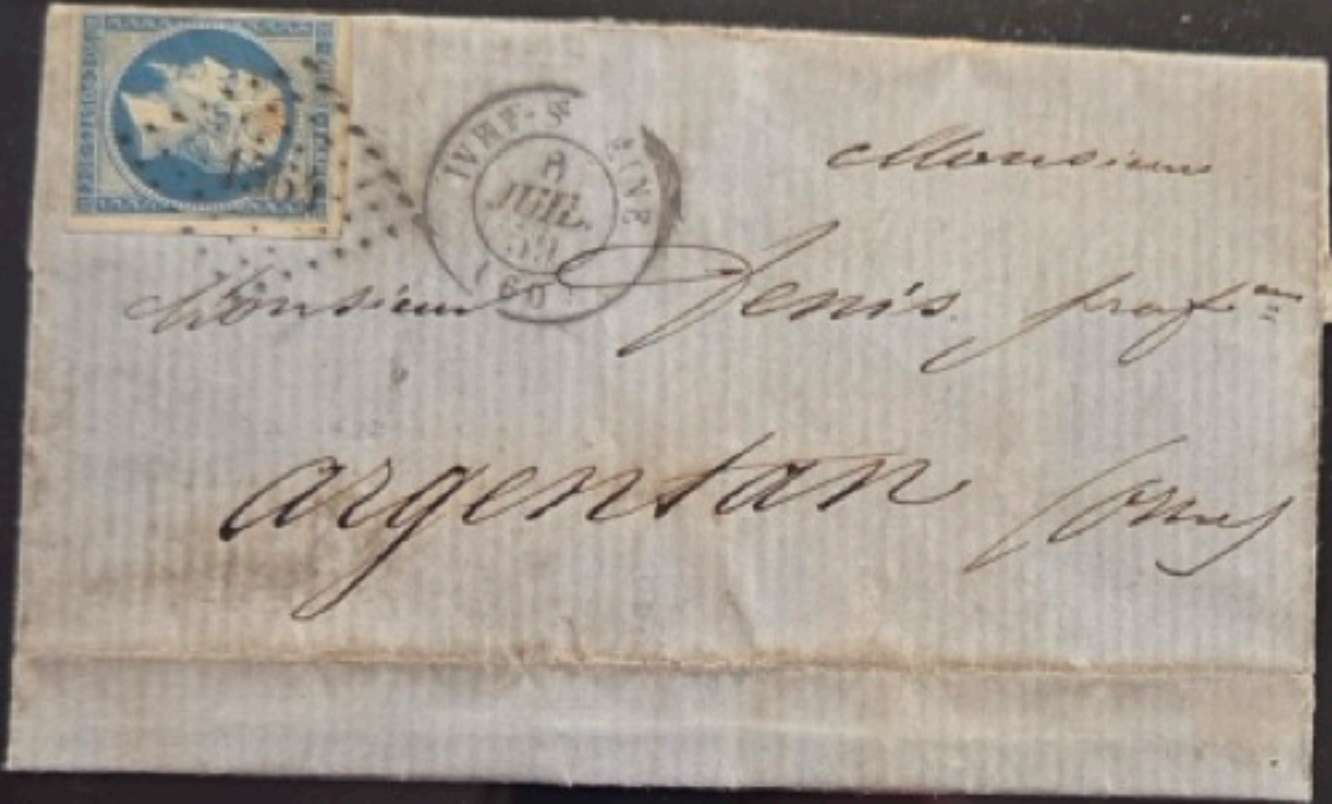 IVRY-S-SEINE
8
JUIL.
59
(60)
Monsieur
Monsieur Denis. prof
argentan (orne)